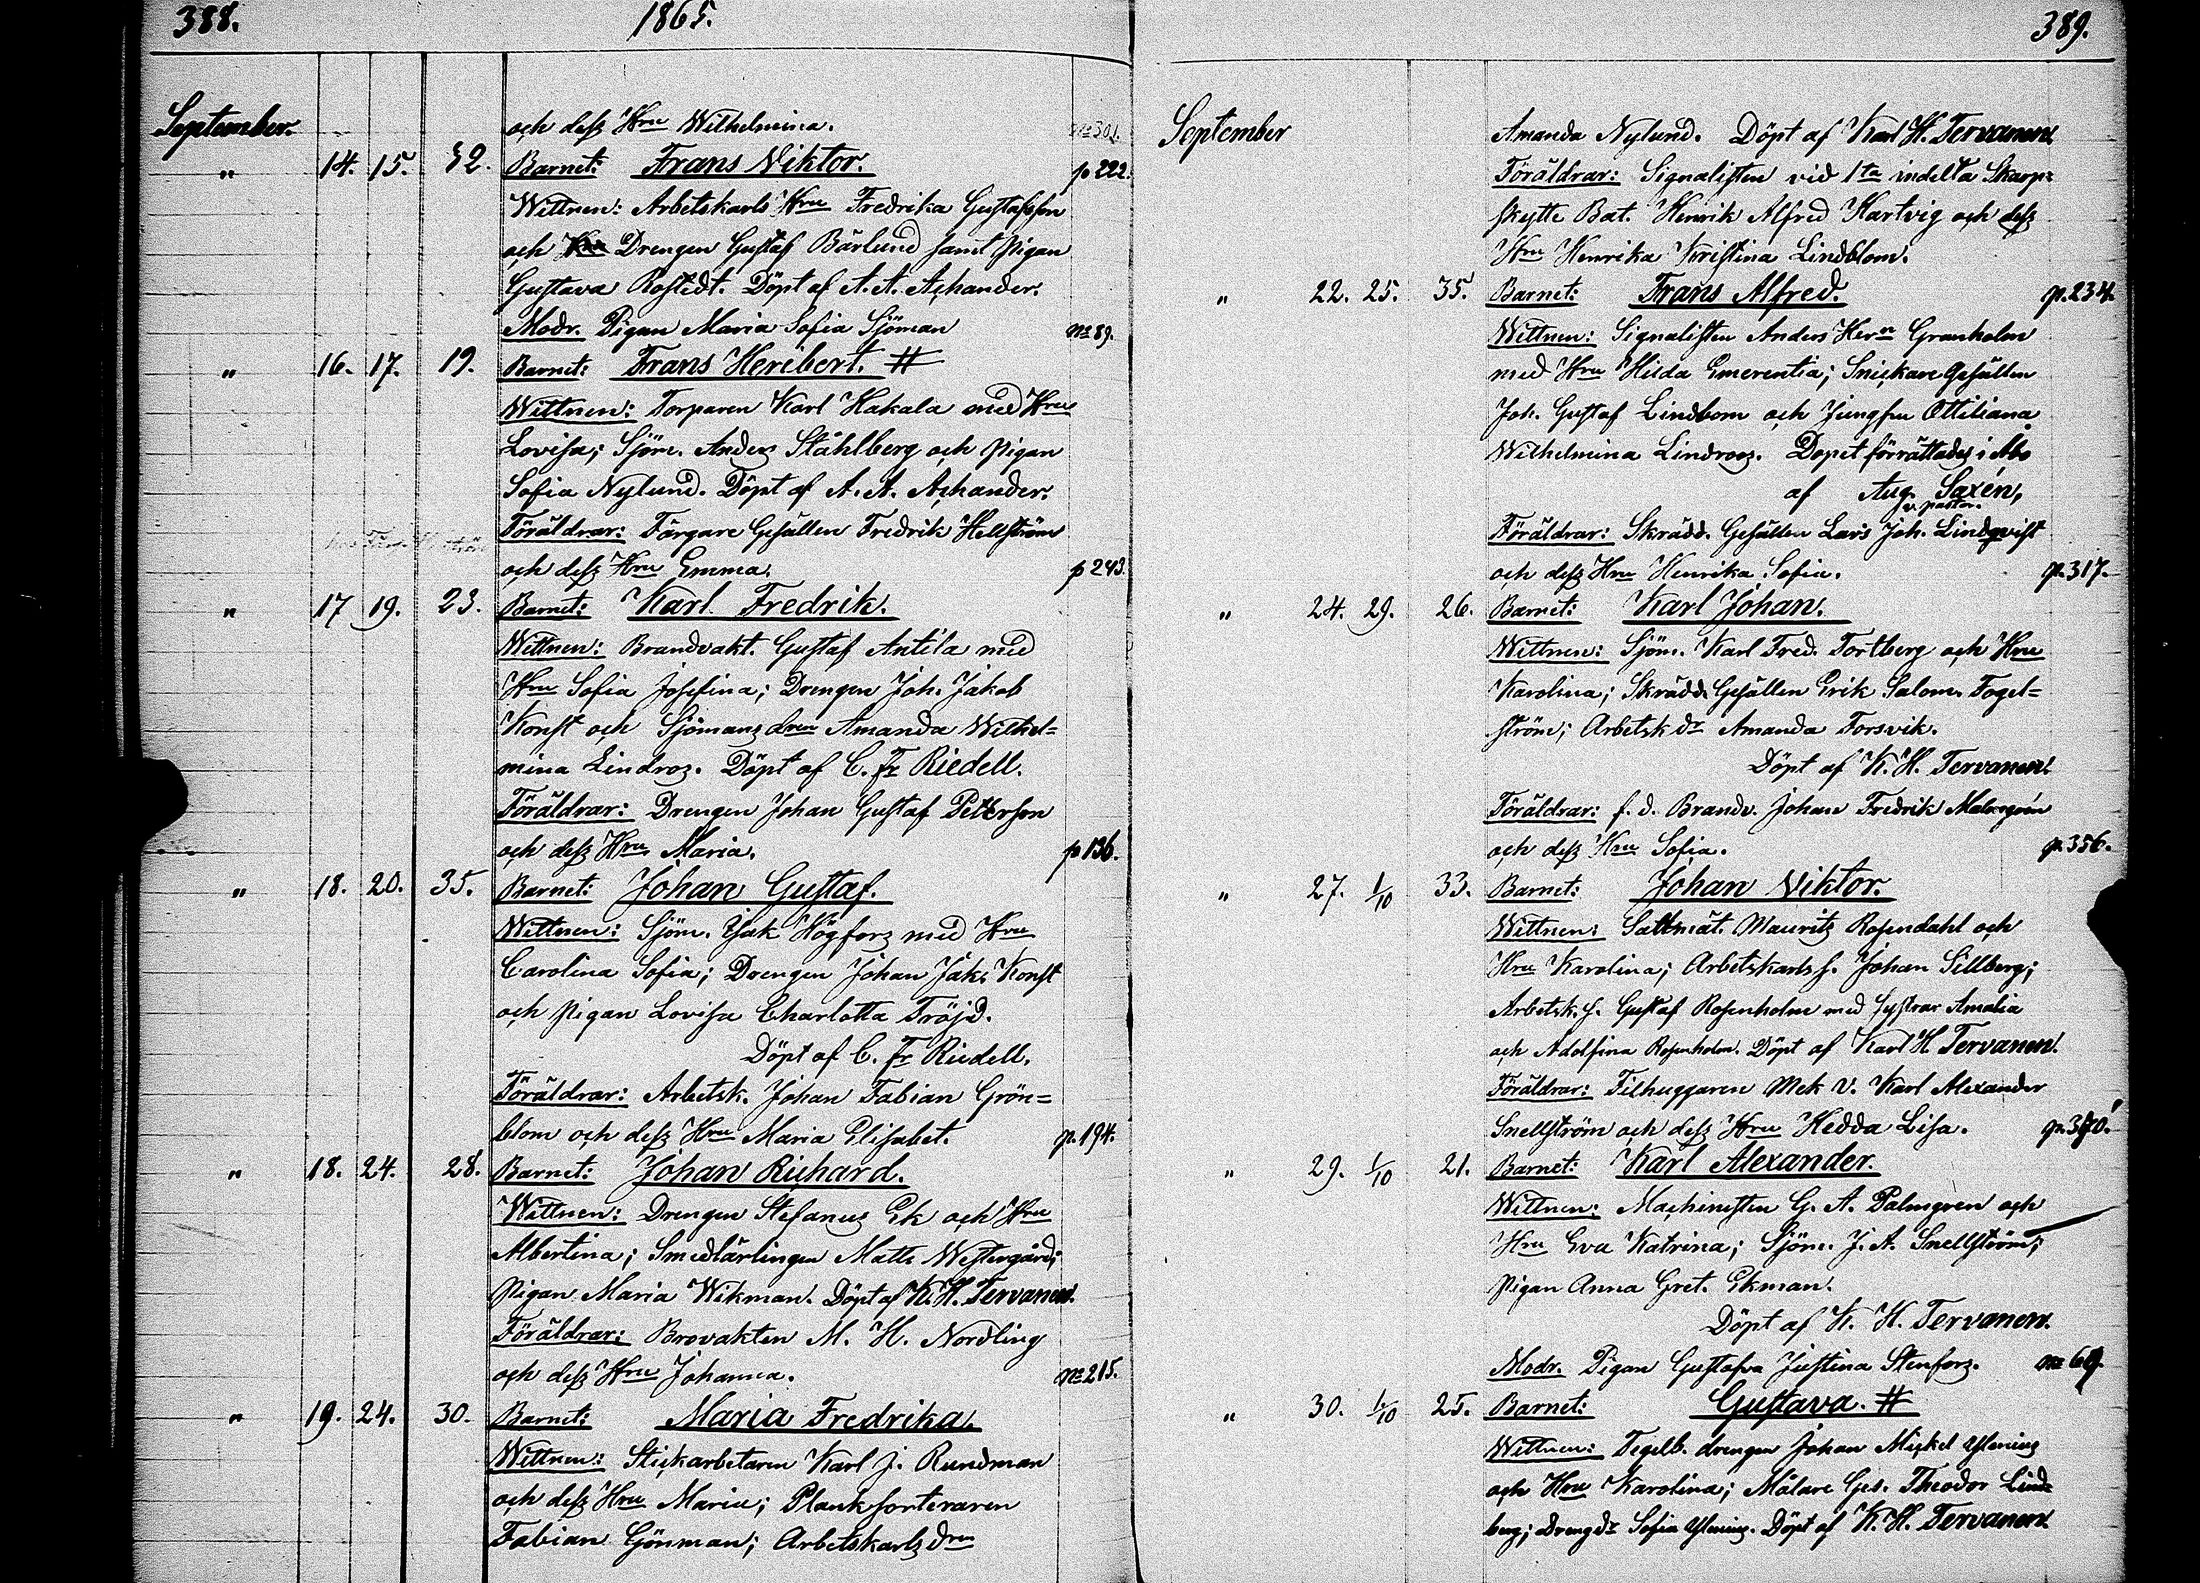 388. 1865.
September. och dess Hru Wilhelmina. No 301.
" 14. 15. 32. Barnet: Frans Viktor. p 222.
Wittnen: Arbetskarls Hru Fredrika Gustafsson
och Drengen Gustaf Bärlund samt pigan
Gustava Rostedt. Döpt af A. A. Achander.
Modr. Pigan Maria Sofia Sjöman No 89.
" 16. 17. 19. Barnet: Frans Heribert. #
Wittnen: Torparen Karl Hakala med Hru
Lovisa; Sjöm. Anders Ståhlberg och pigan
Sofia Nylund. Döpt af A. A. Achander.
Föräldrar: Färgare Gesällen Fredrik Hellström
och dess Hru Emma. p 243.
" 17 19. 23. Barnet: Karl Fredrik.
Wittnen: Brandvakt. Gustaf Antila med
Hru Sofia Josefina; Drengen Joh. Jakob
Konst och Sjömans dren Amanda Wilhel=
mina Lindros. Döpt af C. Fr Riedell.
Föräldrar: Drengen Johan Gustaf Petterson
och dess Hru Maria. p 136.
" 18. 20. 35. Barnet: Johan Gustaf.
Wittnen: Sjöm. Isak Högfors med Hru
Carolina Sofia; Drengen Johan Jak. Konst
och pigan Lovisa Charlotta Fröjd.
Döpt af C. Fr Riedell.
Föräldrar: Arbetsk. Johan Fabian Grön=
blom och dess Hru Maria Elisabet. p. 194.
" 18. 24. 28. Barnet: Johan Richard.
Wittnen: Drengen Stefanus Ek och Hru
Albertina; Smedlärlingen Matts Westergård;
pigan Maria Wikman. Döpt af K. H. Tervanen.
Föräldrar: Brovakten M. H. Nordling
och dess Hru Johanna. No 215.
" 19. 24. 30. Barnet: Maria Fredrika.
Wittnen: Stickarbetaren Karl J. Rundman
och dess Hru Maria; Planksorteraren
Fabian Gönman; Arbetskarls dren
389.
September Amanda Nylund. Döpt af Karl H. Tervanen.
Föräldrar: Signalisten vid 1ta indelta Skarp=
skytte Bat. Henrik Alfred Hartvig och dess
Hru Henrika Kristina Lindblom.
" 22. 25. 35. Barnet: Frans Alfred. p. 234.
Wittnen: Signalisten Anders Hern Granholm
med Hru Hilda Emerentia; Snickare Gesällen
Joh. Gustaf Lindbom och Jungfru Ottiliana
Wilhelmina Lindroos. Dopet förrättades i Åbo
af Aug. Saxén,
v. pastor.
Föräldrar: Skrädd. Gesällen Lars Joh. Lindqvist
och dess Hru Henrika Sofia. p. 317.
" 24. 29. 26. Barnet: Karl Johan.
Wittnen: Sjöm. Karl Fred. Fortberg och Hru
Karolina; Skrädd. Gesällen Erik Salom. Fogel=
ström; Arbetsk dr Amanda Forsvik.
Döpt af K. H. Tervanen.
Föräldrar: f. d. Brandv. Johan Fredrik Malmgrén
och dess Hru Sofia. p. 356.
" 27. 1/10 33. Barnet: Johan Viktor.
Wittnen: Saltmät. Mauritz Rosendahl och
Hru Karolina; Arbetskarls s. Johan Sillberg;
Arbetsk. s. Gustaf Rosenholm med systrar Amalia
och Adolfina Rosenholm. Döpt af Karl H Tervanen.
Föräldrar: Filhuggaren Mek V. Karl Alexander
Snellström och dess Hru Hedda Lisa. p. 370.
" 29. 1/10 21. Barnet: Karl Alexander.
Wittnen: Machinisten G. A. Palmgren och
Hru Eva Katrina; Sjöm. J. A. Snellström;
pigan Anna Gret. Ekman.
Döpt af K. H. Tervanen.
Modr. Pigan Gustafva Justina Stenfors. No 69.
" 30. 1/10 25. Barnet: Gustava. #
Wittnen: Tegelb. drengen Johan Mickel Ylenius
och Hru Karolina; Målare Ges. Theodor Lind=
berg; Dreng dr Sofia Ylenius. Döpt af K. H. Tervanen.